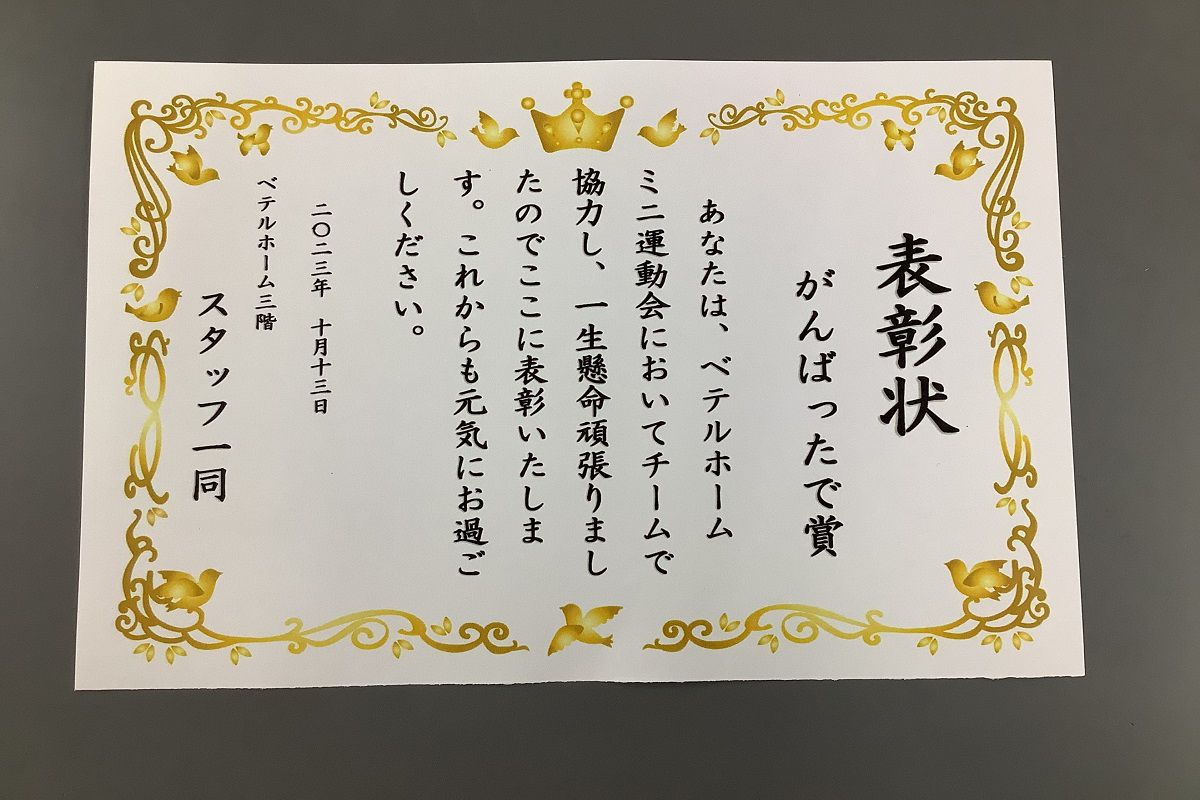 表彰状
がんばったで賞
あなたは、ベテルホーム
ミニ運動会においてチームで
協力し、一生懸命頑張りまし
たのでここに表彰いたしま
す。これからも元気にお過ご
しください。
二〇二三年　十月十三日
ベテルホーム三階
スタッフ一同